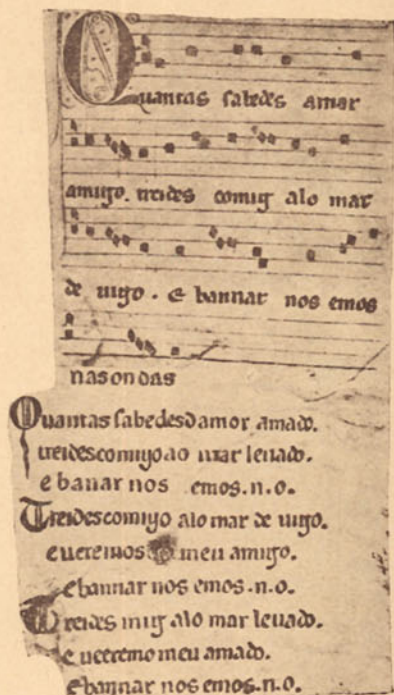 Quantas sabedes amar
amigo. treides comig alo mar
de uigo. e bannar nos emos
nas ondas
Quantas sabedes damor amado.
treides comigo ao mar leuado.
e banar nos emos.n.o.
Treides comigo alo mar de uigo.
e ueremos meu amigo.
e bannar nos emos.n.o.
Treides mig alo mar leuado.
e ueeremo meu amado.
e bannar nos emos.n.o.